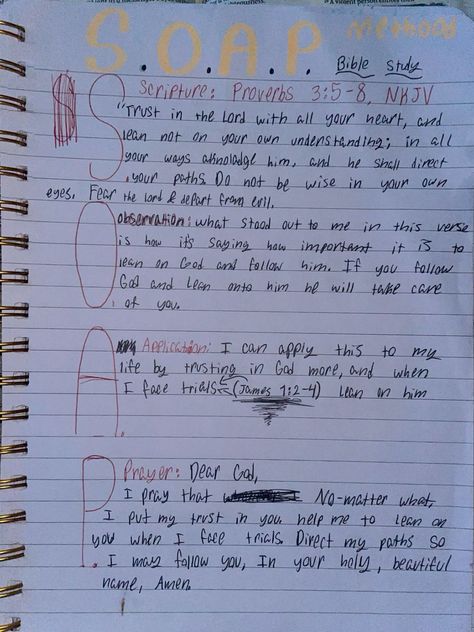 S.O.A.P. method
Bible study
Scripture: Proverbs 3:5-8, NKJV
"Trust in the Lord with all your heart, and
lean not on your own understanding; in all
your ways aknoladge him, and he shall direct
your paths. Do not be wise in your own
eyes. Fear the lord & depart from evil.
observation: what stood out to me in this verse
is how it's saying how important it is to
lean on God and follow him. If you follow
God and lean onto him he will take care
of you.
Application: I can apply this to my
life by trusting in God more, and when
I face trials (James 1:2-4) lean on him
Prayer: Dear God,
I pray that No-matter what,
I put my trust in you, help me to lean on
you when I face trials. Direct my paths so
I may follow you, In your holy, beautiful
name, Amen.